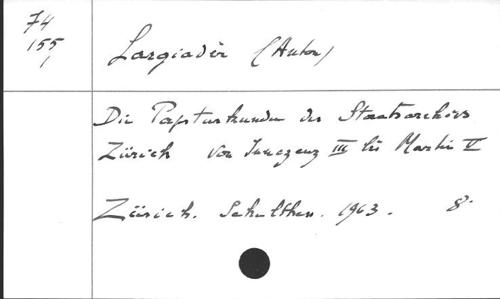 74
155,
Largiadèr (Anton)
Die Papsturkunden des Staatsarchivs
Zürich von Innozenz III bis Martin V
Zürich. Schulthess. 1963. 8°